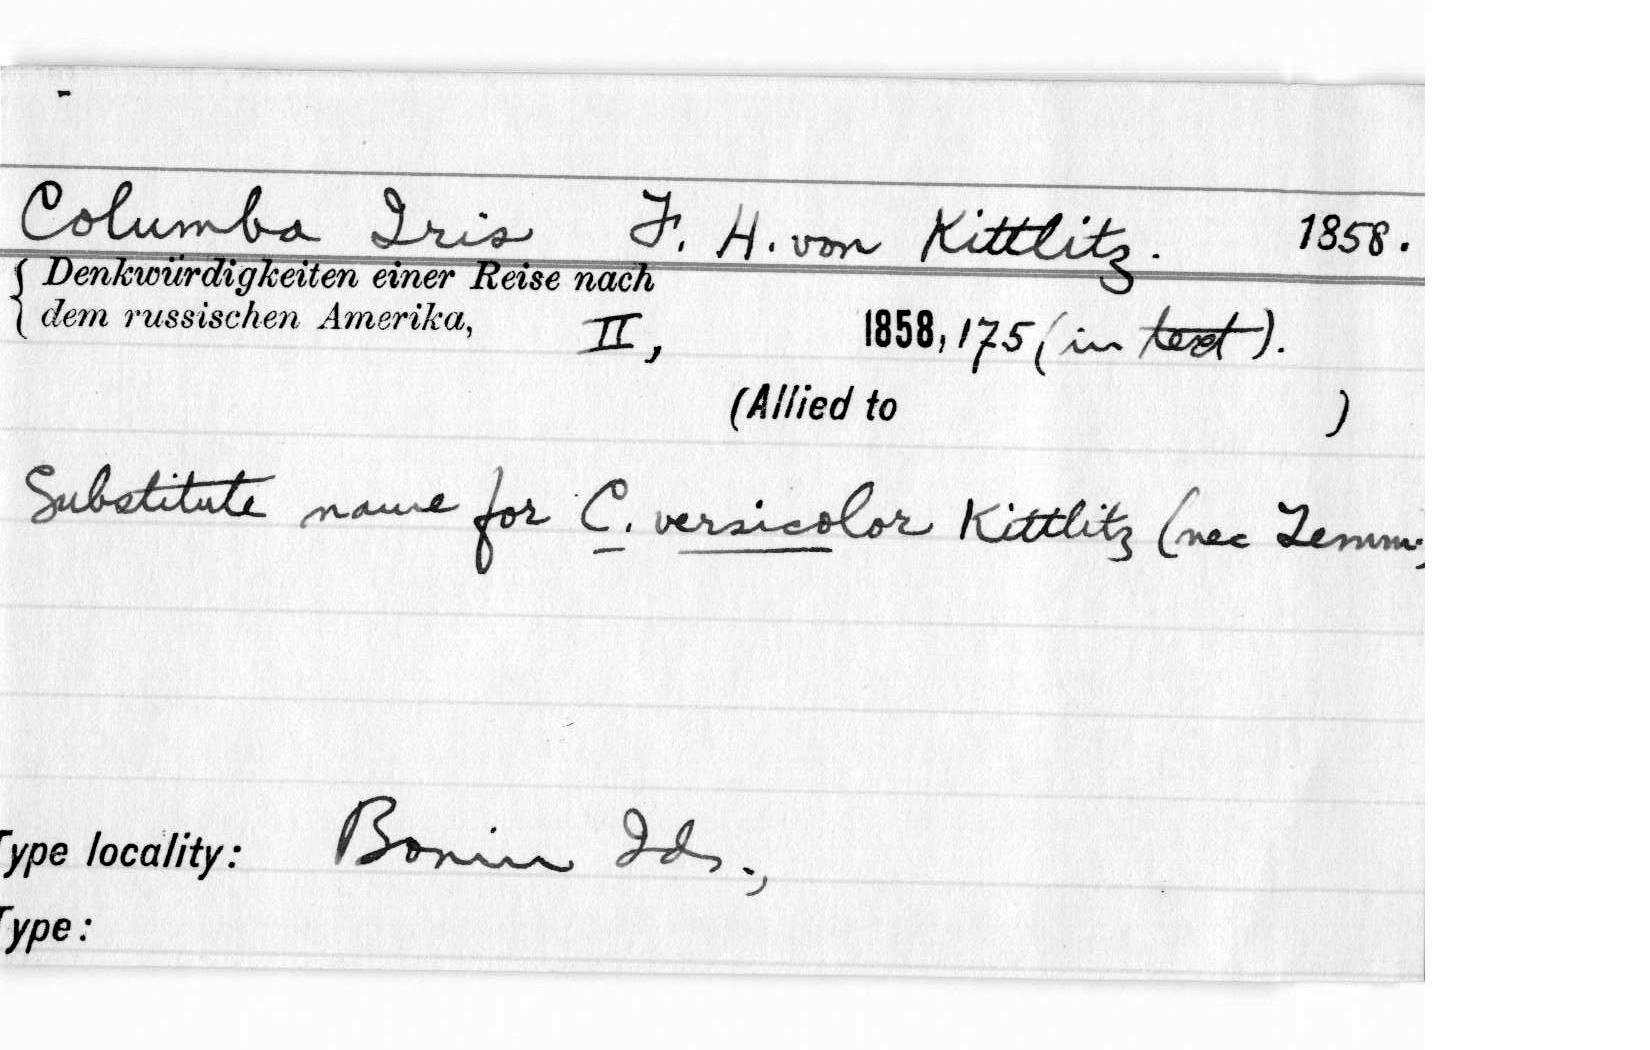 Columba Iris F. H. von Kittlitz. 1858.
Denkwürdigkeiten einer Reise nach
dem russischen Amerika, II, 1858, 175 (in text).
(Allied to )
Substitute name for C. versicolor Kittlitz (nec Temm.)
Type locality: Bonin Ids.,
Type: